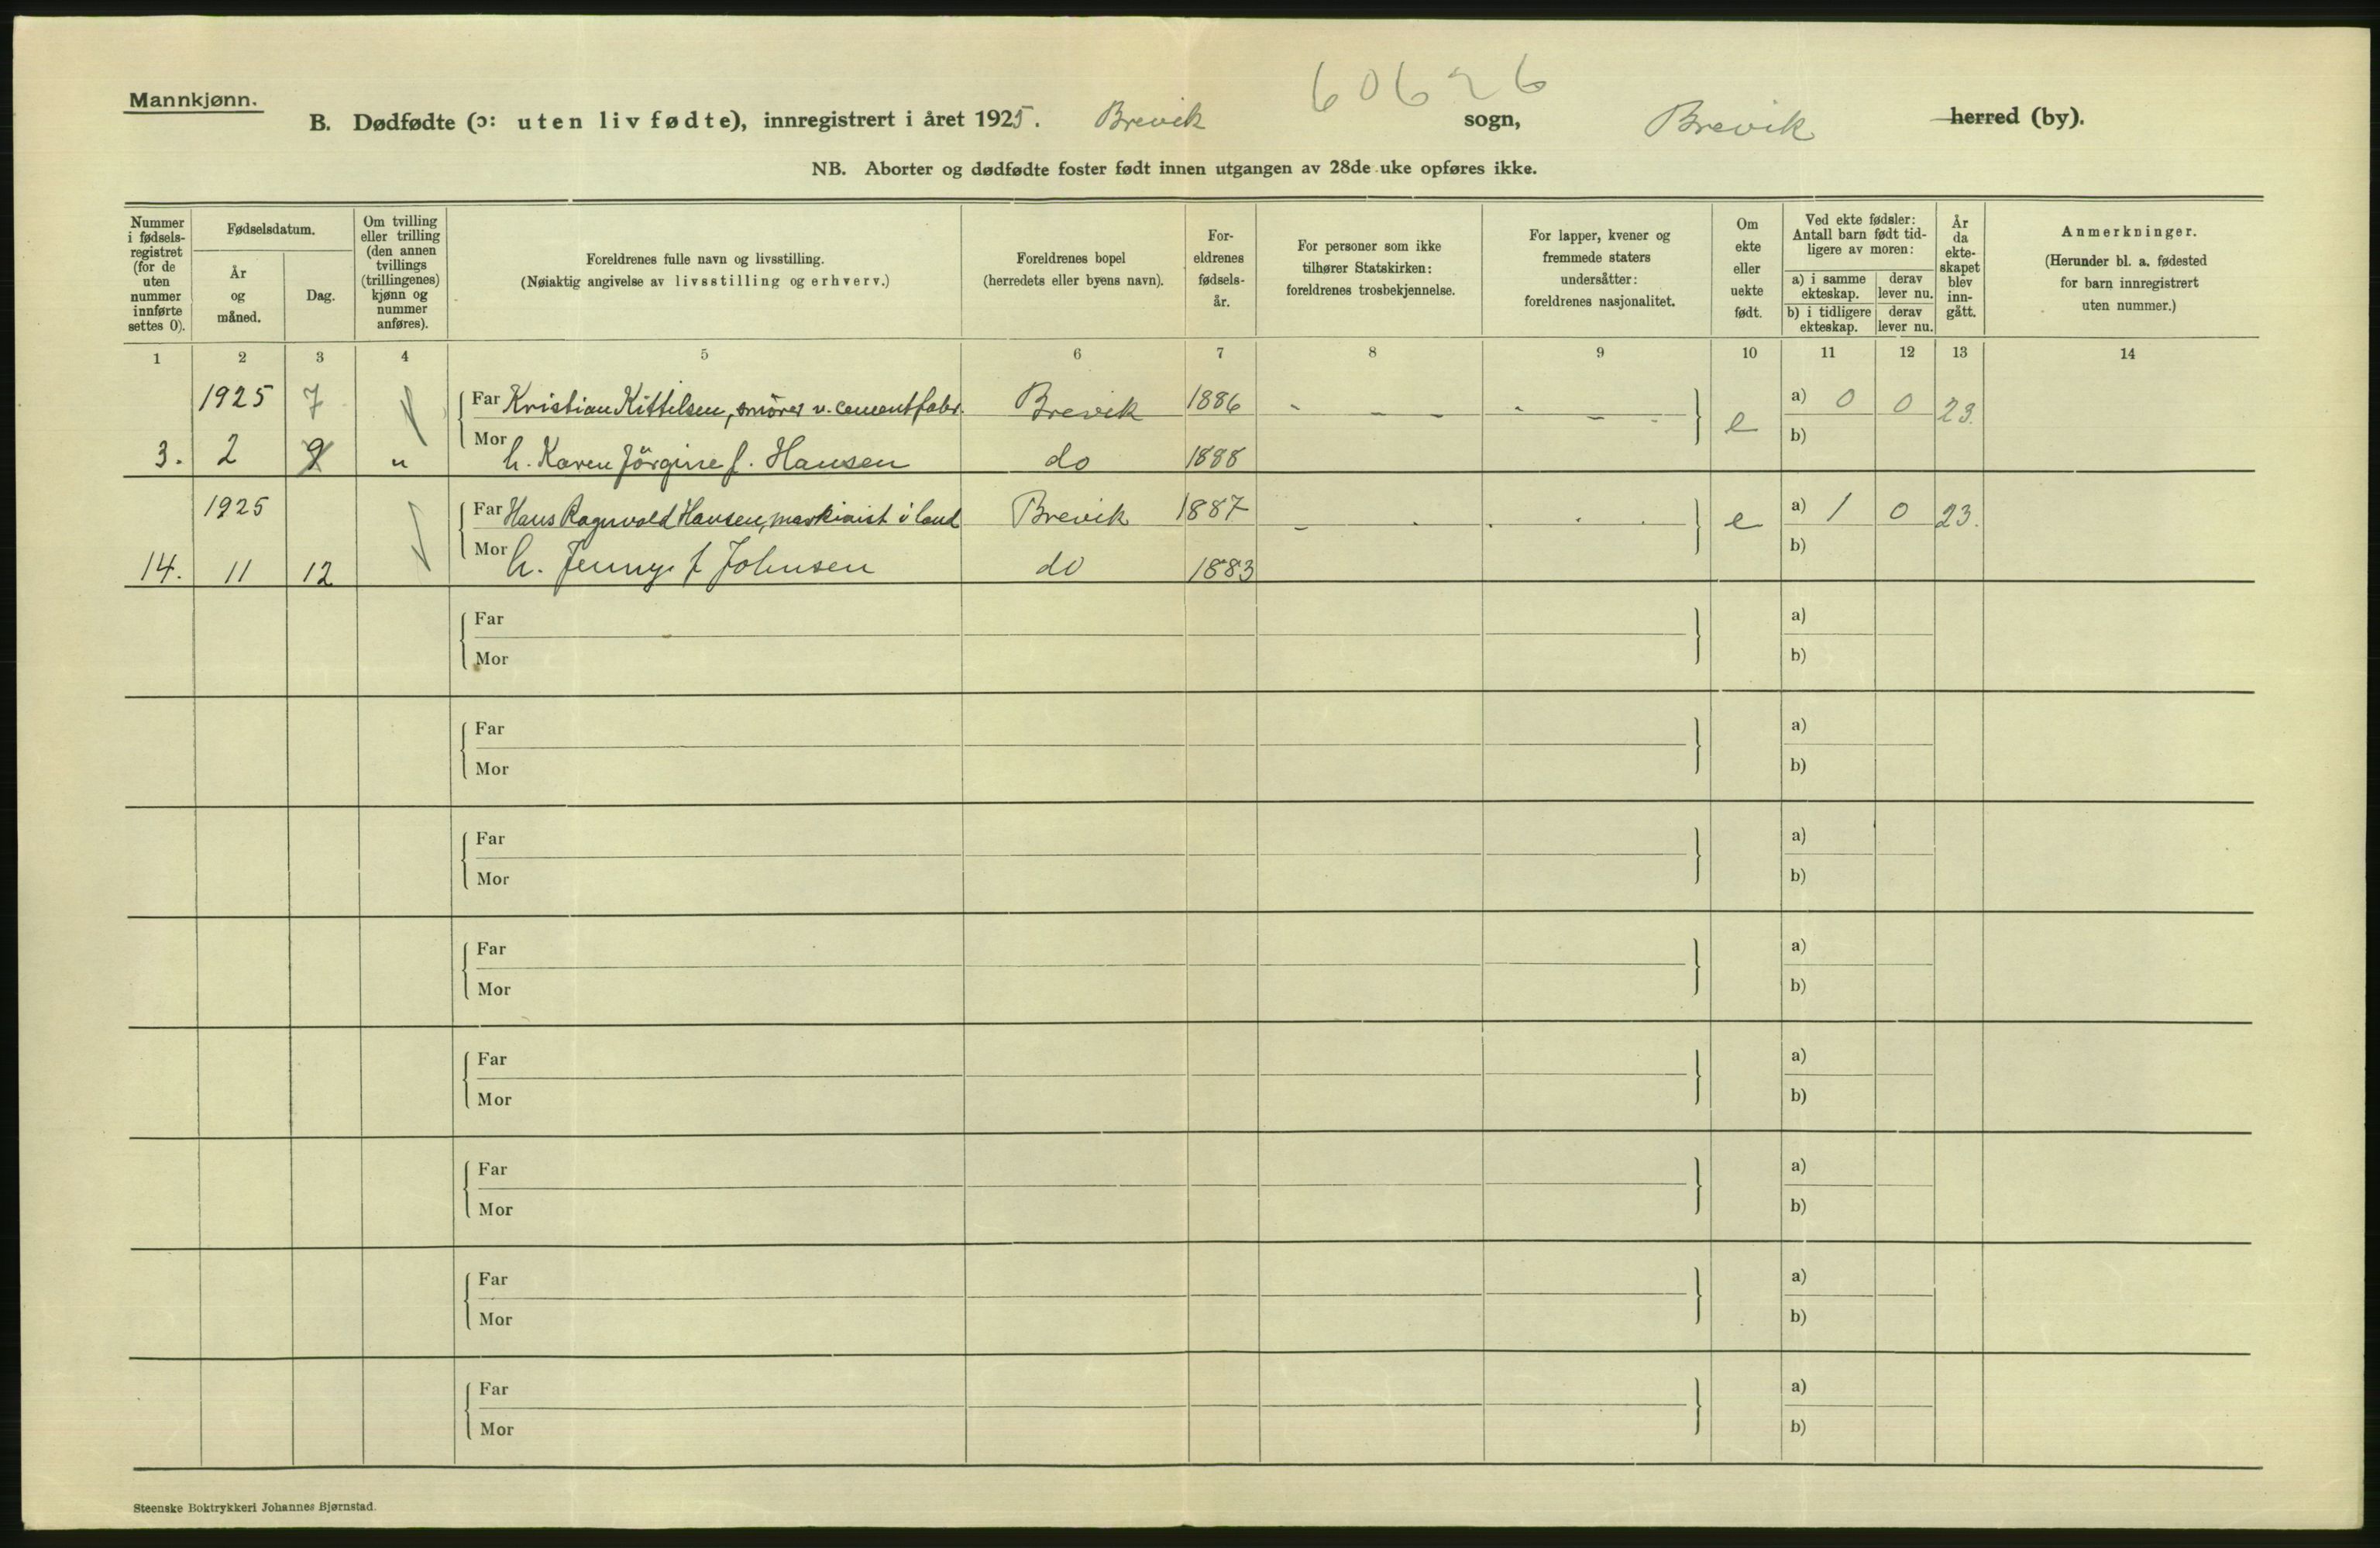 60626
Mannkjønn.
B. Dødfødte (ɔ: uten liv fødte), innregistrert i året 1925. Brevik sogn, Brevik herred (by).
NB. Aborter og dødfødte foster født innen utgangen av 28de uke opføres ikke.
Nummer i fødsels-registret (for de uten nummer innførte settes 0).
Fødselsdatum.
År og måned.
Dag.
Om tvilling eller trilling (den annen tvillings (trillingenes) kjønn og nummer anføres).
Foreldrenes fulle navn og livsstilling.
(Nøiaktig angivelse av livsstilling og erhverv.)
Foreldrenes bopel
(herredets eller byens navn).
For-eldrenes fødsels-år.
For personer som ikke tilhører Statskirken: foreldrenes trosbekjennelse.
For lapper, kvener og fremmede staters undersåtter: foreldrenes nasjonalitet.
Om ekte eller uekte født.
Ved ekte fødsler: Antall barn født tid-ligere av moren:
a) i samme ekteskap.
derav lever nu.
b) i tidligere ekteskap.
derav lever nu.
År da ekte-skapet blev inn-gått.
Anmerkninger.
(Herunder bl. a. fødested for barn innregistrert uten nummer.)
1 2 3 4 5 6 7 8 9 10 11 12 13 14
1925 7 Far Kristian Kittilsen, smører v. cementfabr. Brevik 1886 - - - - - - e a) 0 0 23.
3. 2 9 " Mor h. Karen Jörgine f. Hansen do 1888 b)
1925 Far Hans Ragnvold Hansen, maskinist i land Brevik 1887 - . . . . e a) 1 0 23.
14. 11 12 Mor h. Jenny f Johnsen do 1883 b)
Far a)
Mor b)
Far a)
Mor b)
Far a)
Mor b)
Far a)
Mor b)
Far a)
Mor b)
Far a)
Mor b)
Far a)
Mor b)
Far a)
Mor b)
Steenske Boktrykkeri Johannes Bjørnstad.